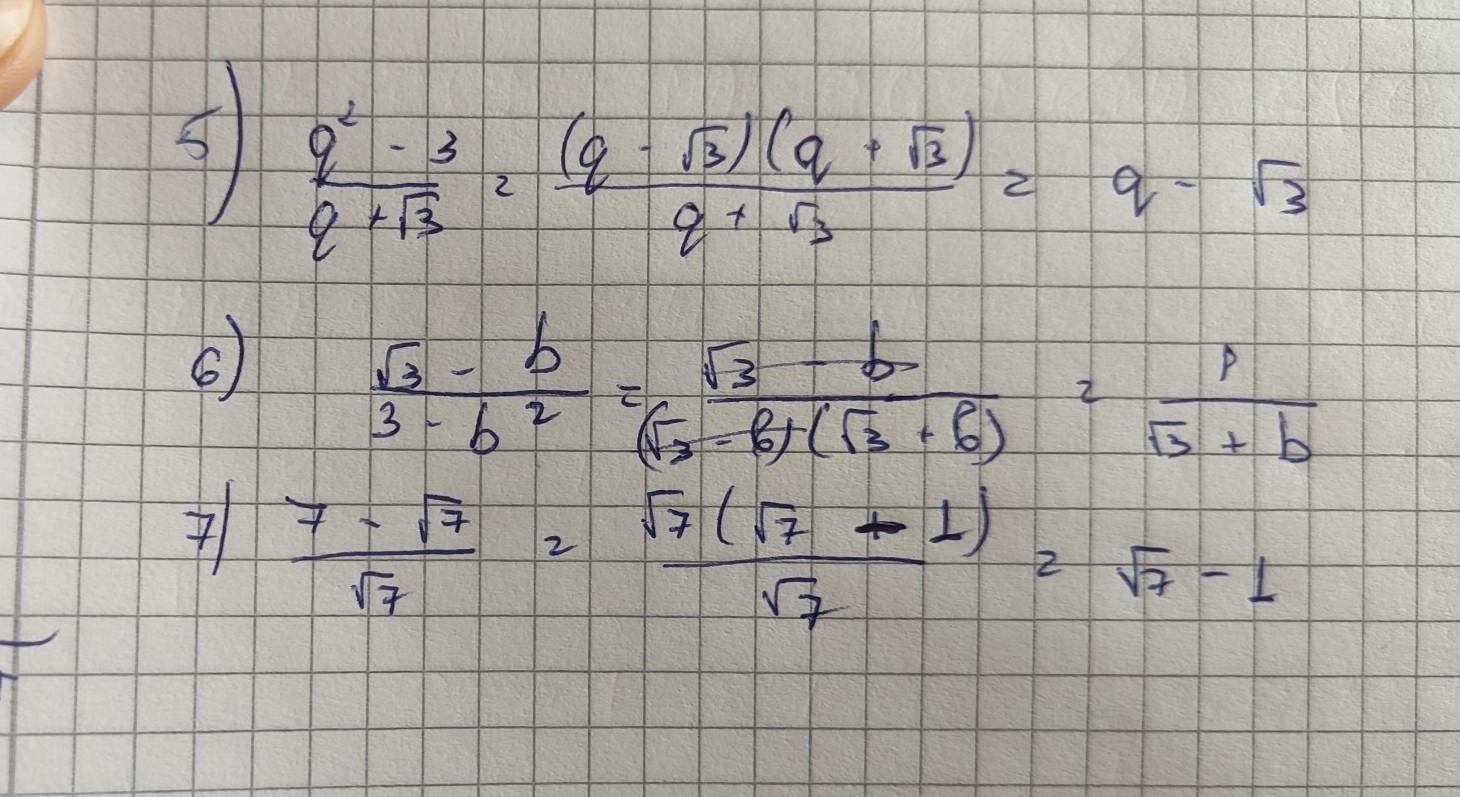 5) (q² - 3)/(q + √3) = ((q - √3)(q + √3))/(q + √3) = q - √3
6) (√3 - b)/(3 - b²) = (√3 - b)/((√3 - b)(√3 + b)) = 1/(√3 + b)
7) (7 - √7)/√7 = (√7(√7 - 1))/√7 = √7 - 1